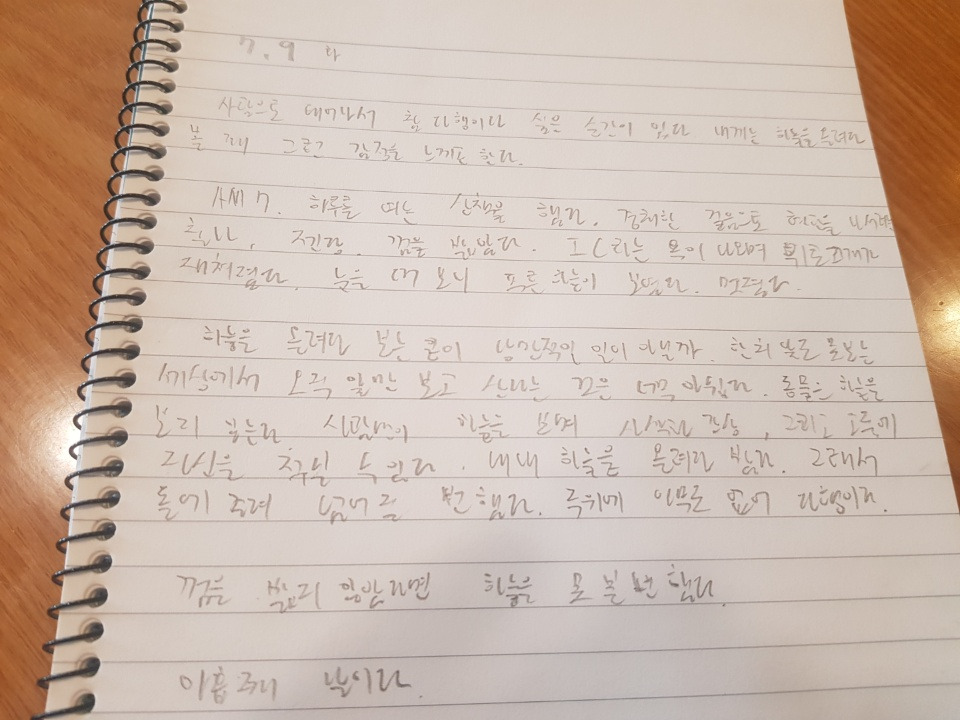 7. 9 화
사람으로 태어나서 참 다행이다 싶은 순간이 있다 내게는 하늘을 올려다
볼 때 그런 감정을 느끼곤 한다.
AM 7. 하루를 여는 산책을 했다. 경쾌한 걸음으로 현관을
젠장, 껌을 밟았다. 라는 욕이 나오며
눈을 떠 보니 푸른 하늘이 보였다. 멋졌다.
하늘을 올려다 보는 일이 낭만적인 일이 아닐까. 한치 앞도 못보는
세상에서 오직 앞만 보고 산다는 것은 너무 아쉽다. 동물은 하늘을
보지 않는다 사람만이 하늘을 보며 감상, 그리고
자신을 수 있다. 내내 하늘을 올려다 봤다. 그래서
돌에 걸려 넘어질 뻔 했다. 주위에 아무도 없어 다행이다.
껌을 밟지 않았다면 하늘을 못 볼 뻔 했다.
이틀째 날이다.